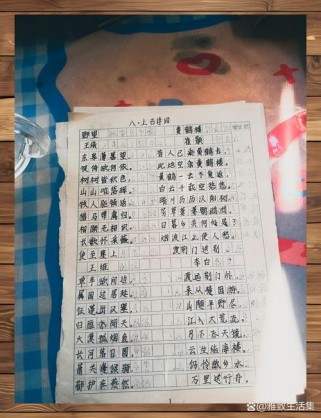 八·上古诗词
野望
王绩
东皋薄暮望，
徙倚欲何依。
树树皆秋色，
山山唯落晖。
牧人驱犊返，
猎马带禽归。
相顾无相识，
长歌怀采薇。
使至塞上
王维
单车欲问边，
属国过居延。
征蓬出汉塞，
归雁入胡天。
大漠孤烟直，
长河落日圆。
萧关逢候骑，
都护在燕然。
黄鹤楼
崔颢
昔人已乘黄鹤去，
此地空余黄鹤楼。
黄鹤一去不复返，
白云千载空悠悠。
晴川历历汉阳树，
芳草萋萋鹦鹉洲。
日暮乡关何处是？
烟波江上使人愁。
渡荆门送别
李白
渡远荆门外，
来从楚国游。
山随平野尽，
江入大荒流。
月下飞天镜，
云生结海楼。
仍怜故乡水，
万里送行舟。
@雅致生活集